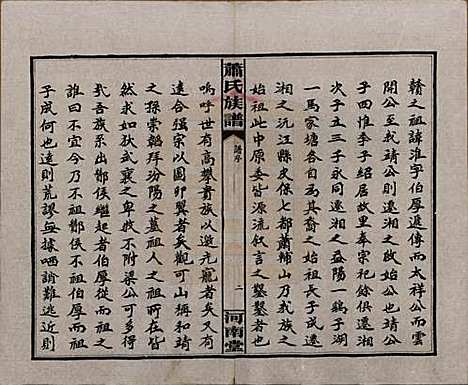 贛之祖諱淮字伯厚遞傳而太祥公而雲
開公至我靖公則遷湘之啟始公也靖公
子四惟季子紹居故里奉崇祀餘俱遷湘
次子立三子永同遷湘之益陽一鷄子湖
一馬家塘各自其裔之始祖長子成遷
湘之沅江縣史保七都蕭輔山乃我族之
始祖此中原委皆源流敘言之鑿鑿者也
蕭氏族譜
譜序
二
河南堂
嗚呼世有高攀貴族以邀光寵者矣又有
遠合強宗以圖卵翼者矣觀可山稱和靖
之孫崇韜拜汾陽之墓祖人之祖賤孰甚
然求如狄武襄之卑不附梁公可多得
我吾族系出酇侯繼起者伯厚至我靖公
誰曰不宜今乃不祖酇侯祖伯厚而祖
子成何也遠則荒謬無據哂誚難逃近則